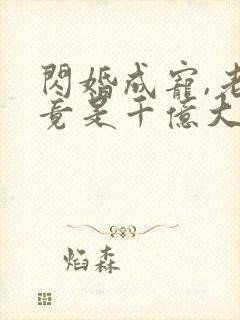 閃婚成寵,老
竟是千億大
焰森